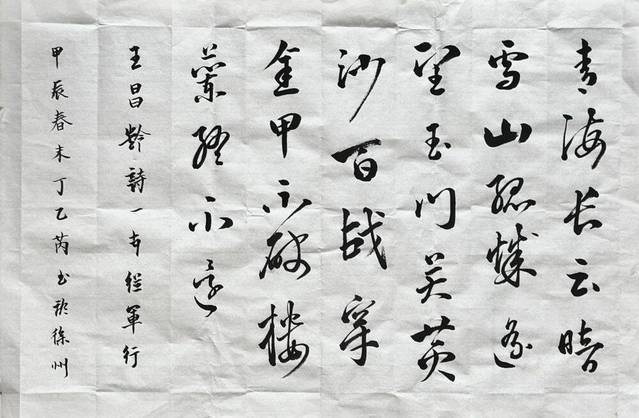 青海长云暗
雪山孤城遥
望玉门关黄
沙百战穿
金甲不破楼
蘭终不還
王昌齡詩一首從軍行
甲辰春末丁乙芮书於徐州